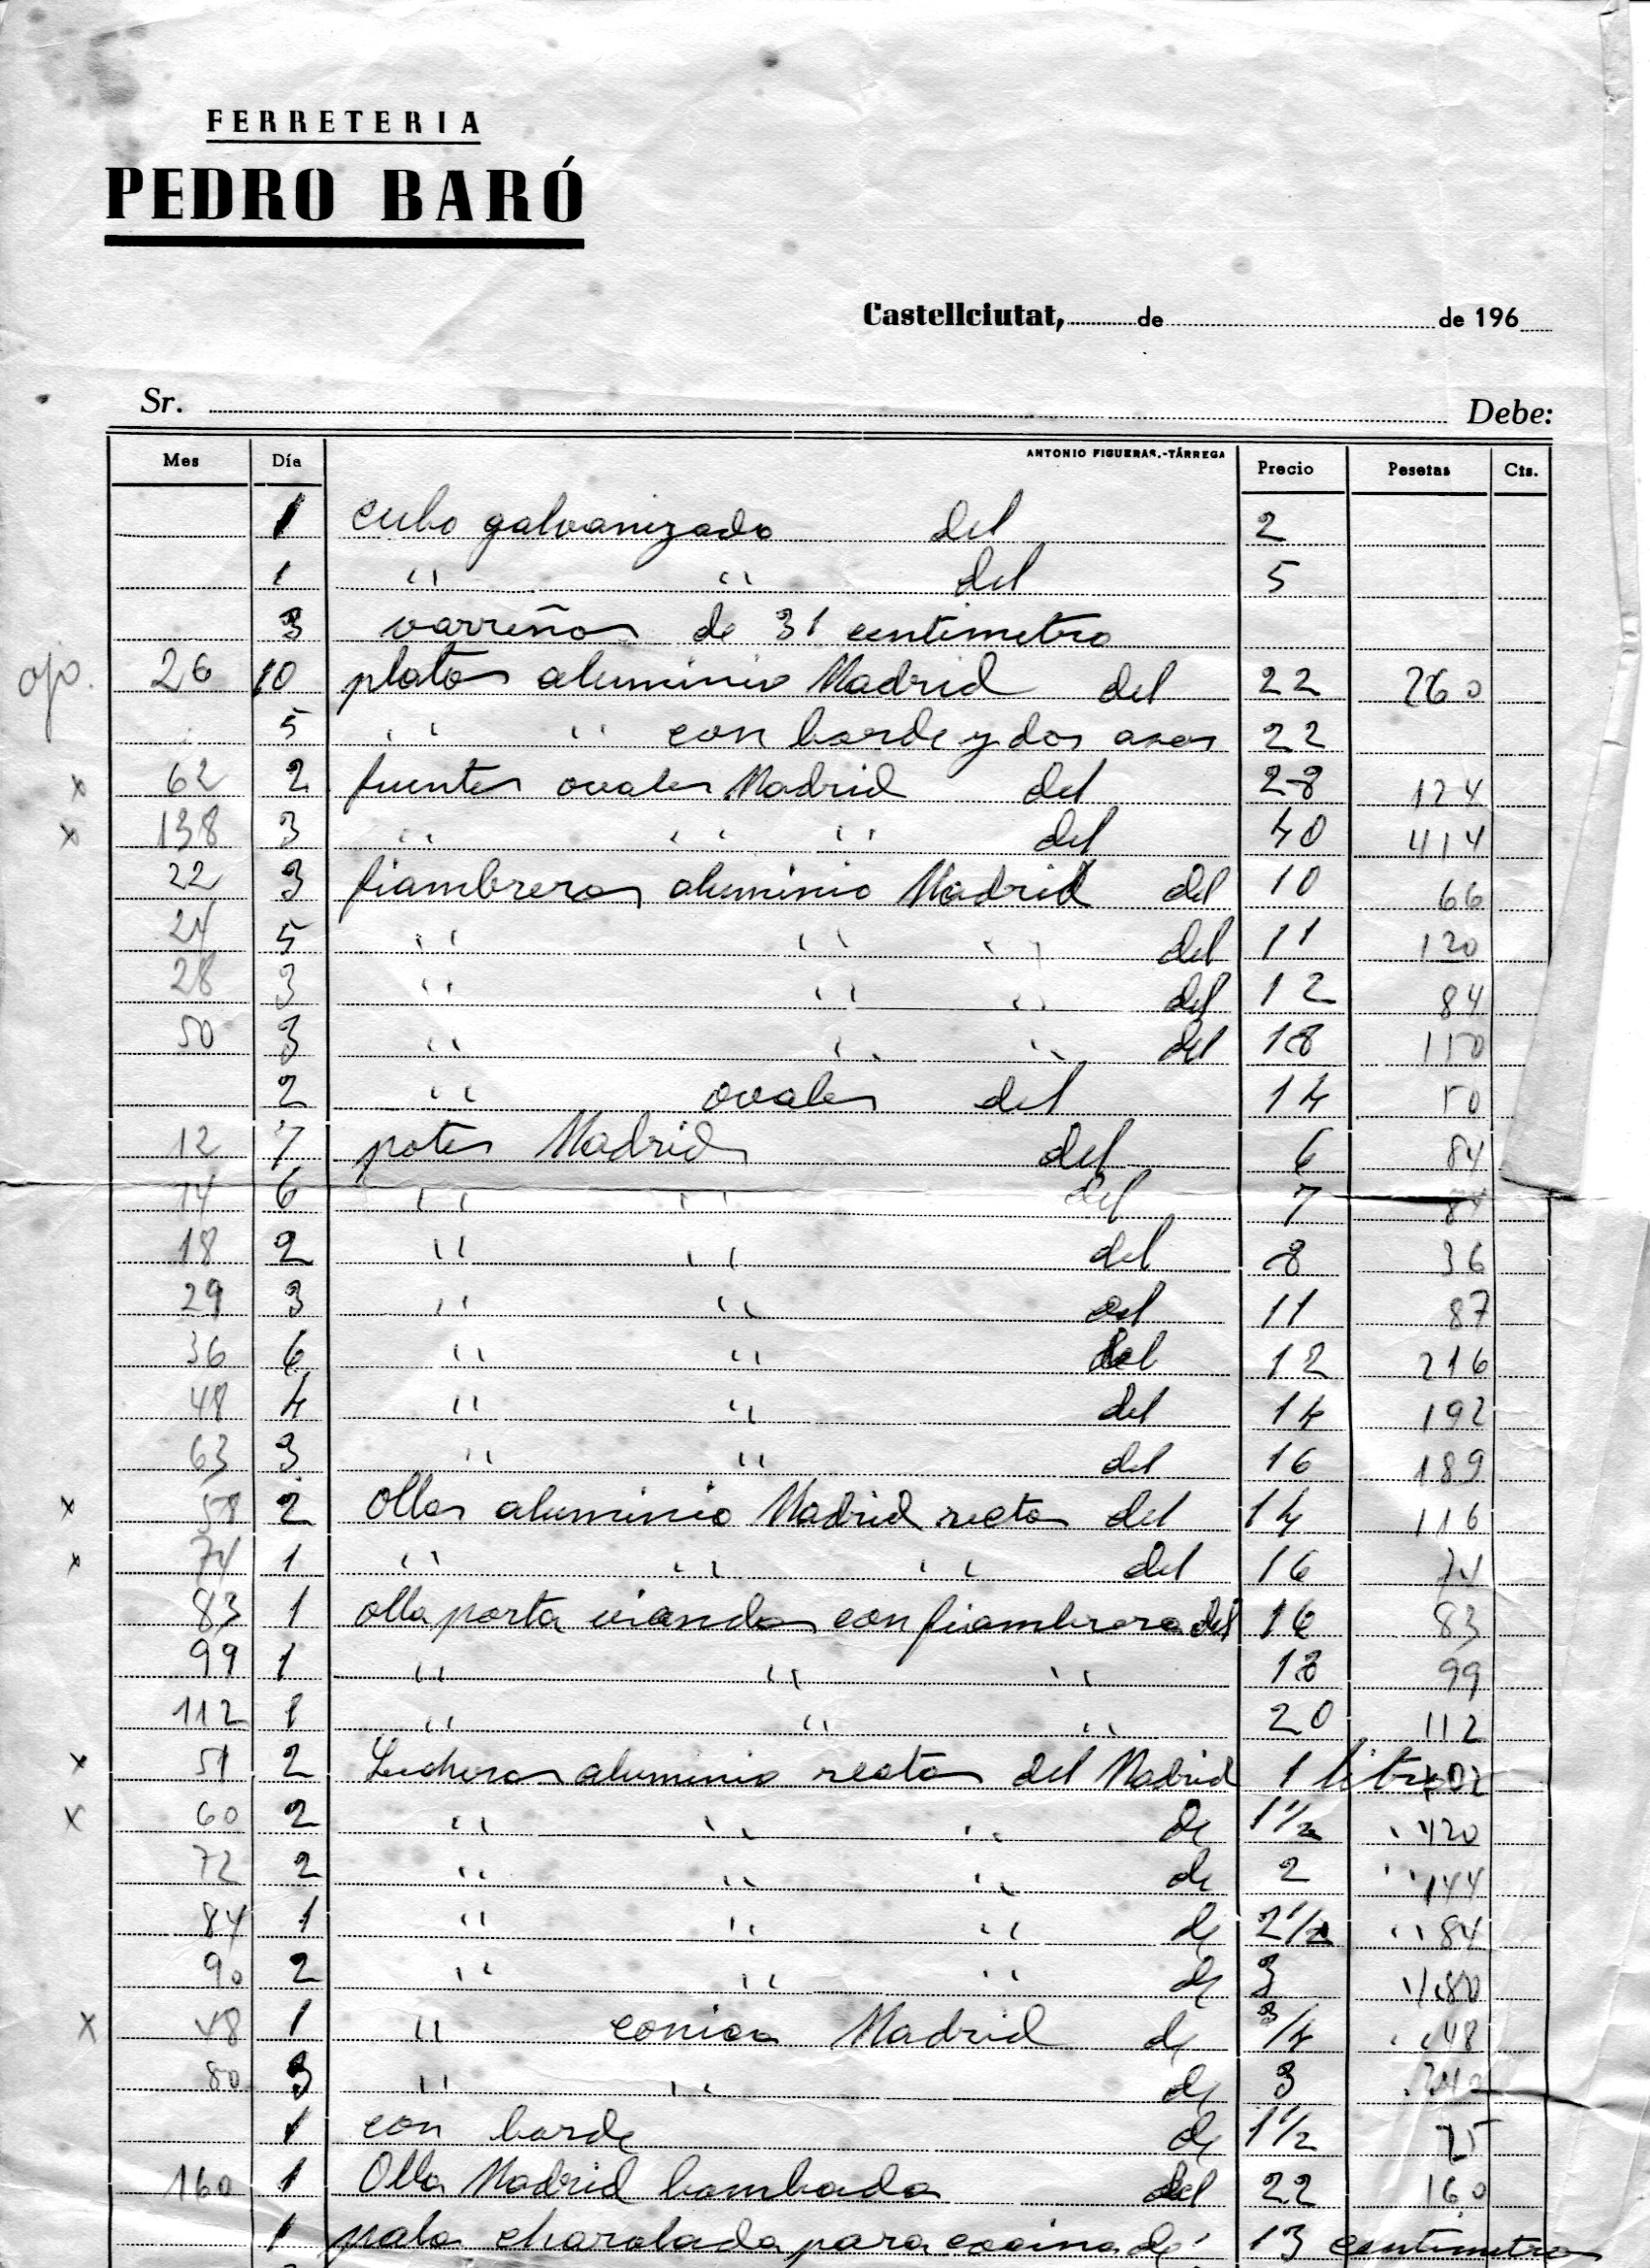 FERRETERIA
PEDRO BARÓ
Castellciutat, de de 196
Sr. Debe:
Mes Día ANTONIO FIGUERAS.-TÁRREGA Precio Pesetas Cts.
1 cubo galvanizado del 2
1 " " del 5
3 varreños de 31 centimetro
ojo. 26 10 platos aluminio Madrid del 22 260
5 " " con borde y dos asas 22
x 62 2 fuentes ovales Madrid del 28 124
x 138 3 " " " del 40 414
22 3 fiambreras aluminio Madrid del 10 66
24 5 " " " del 11 120
28 3 " " " del 12 84
50 3 " " " del 18 150
2 " ovales del 14 50
12 7 potes Madrid del 6 84
14 6 " " del 7 84
18 2 " " del 8 36
29 3 " " del 11 87
36 6 " " del 12 216
48 4 " " del 14 192
63 3 " " del 16 189
x 58 2 Ollas aluminio Madrid rectas del 14 116
x 74 1 " " " del 16 74
83 1 olla porta viandas con fiambrera del 16 83
99 1 " " " 18 99
112 1 " " " 20 112
x 51 2 Lecheras aluminio rectas del Madrid 1 litro 102
x 60 2 " " " de 1 1/2 " 120
72 2 " " " de 2 " 144
84 1 " " " de 2 1/2 " 84
90 2 " " " de 3 " 180
x 48 1 " conica Madrid de 3/4 " 48
80 3 " " de 3
1 con borde de 1 1/2 75
160 1 Olla Madrid bombada del 22 160
1 pala charolada para cocina de 13 centimetros